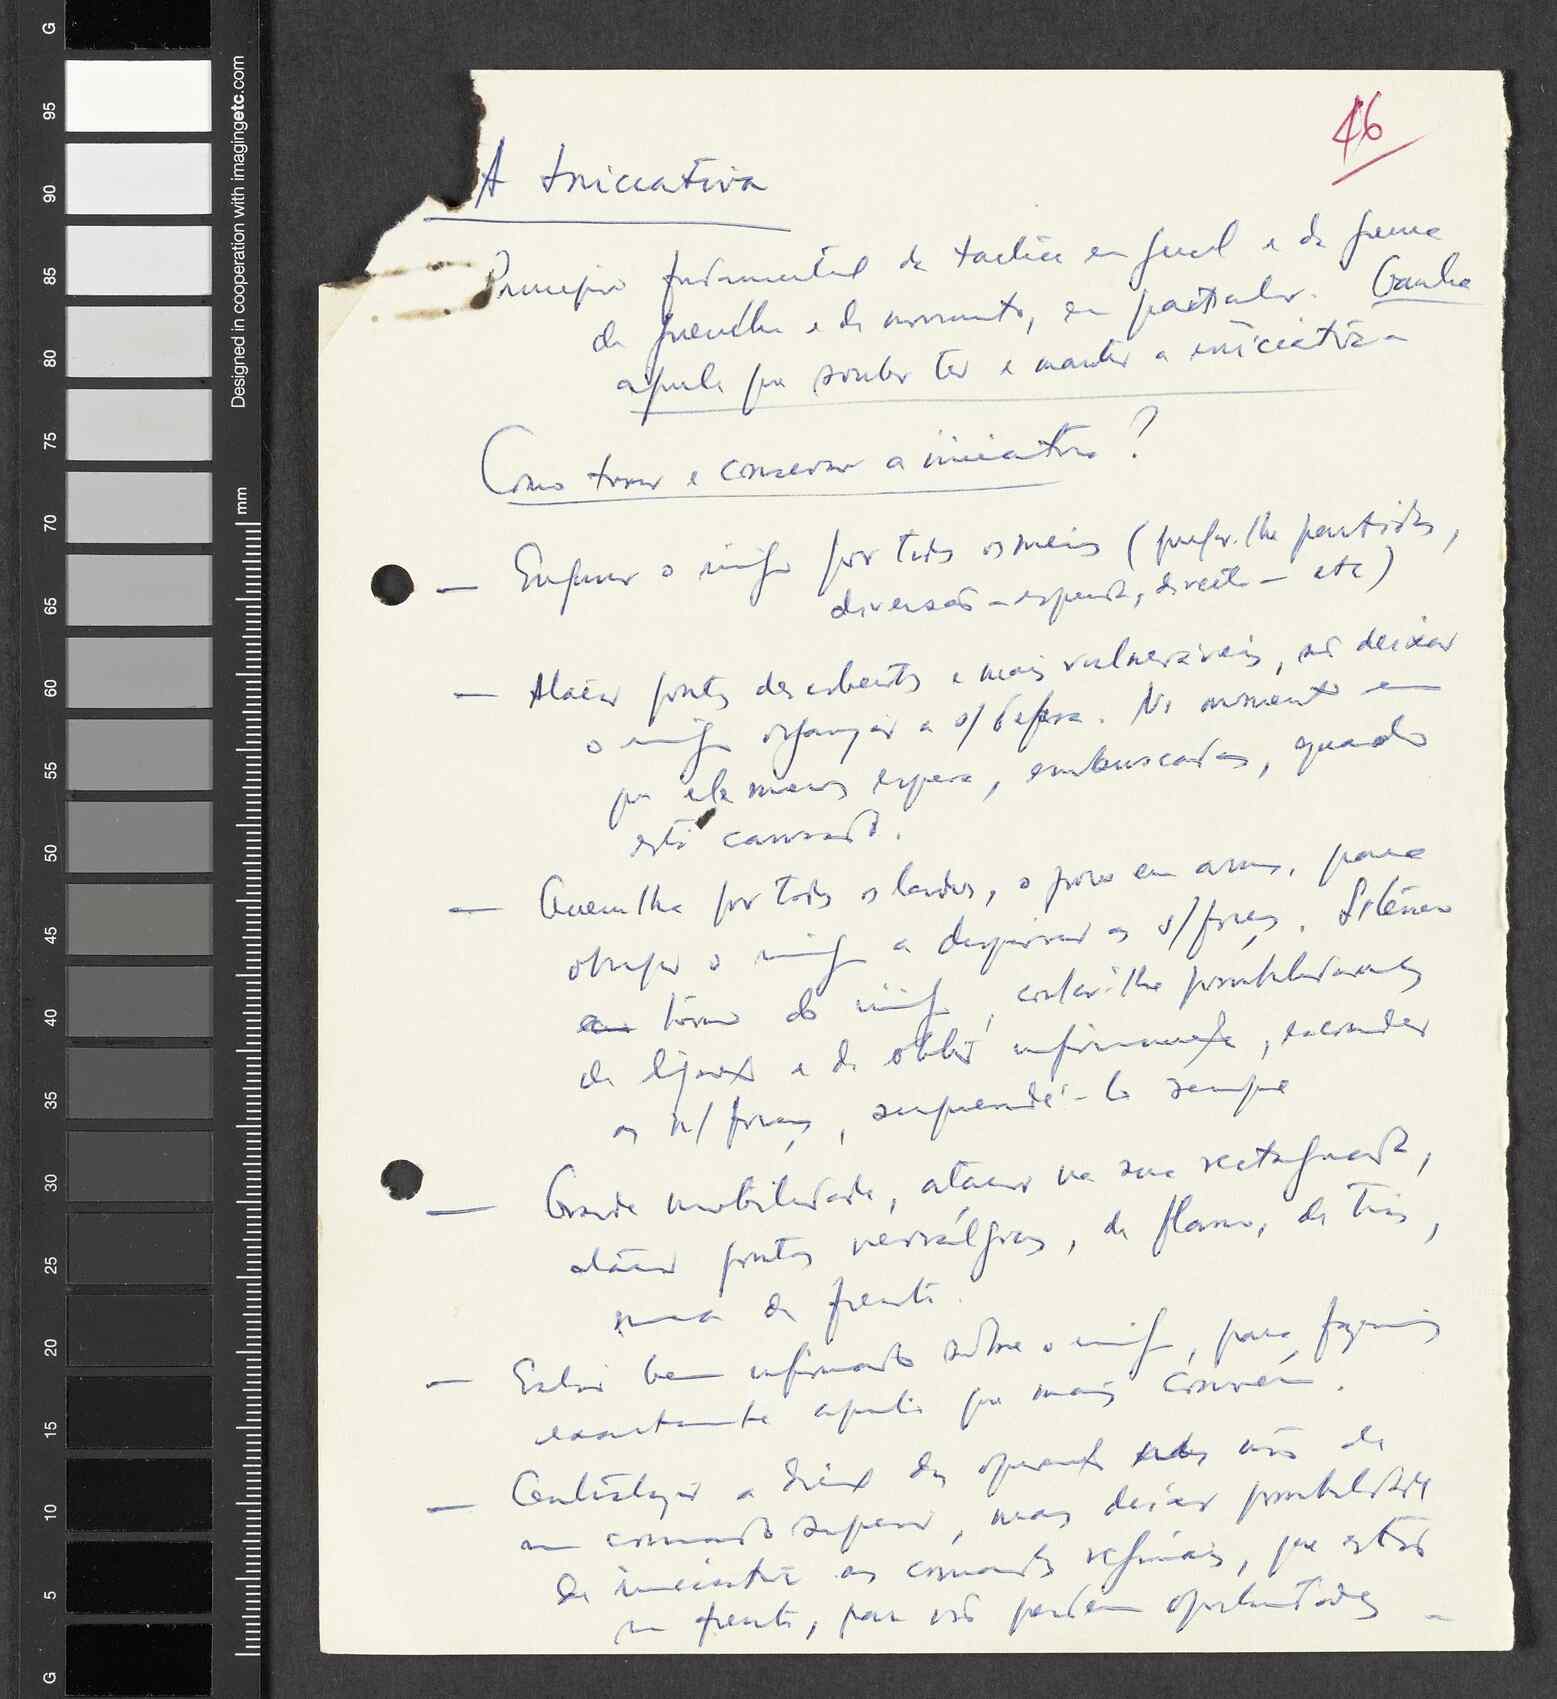 46
A Iniciativa
Princípio fundamental da táctica em geral e da guerra
de guerrilha e de movimento, em particular. Ganha
aquele que souber ter e manter a iniciativa
Como tomar e conservar a iniciativa?
— Enganar o inimigo por todos os meios (
diversão - esquerda, direita - etc)
— Atacar pontos descobertos e mais vulneráveis, não deixar
o inimigo organizar a s/ defesa. No momento em
que ele menos espera, embuscadas, quando
está cansado.
— Guerrilha por todos os lados, o povo em armas, para
obrigar o inimigo a dispersar as s/ forças. Silêncio
em torno do inimigo, cortar-lhe possibilidades
de ligação e de obter informações, esconder
as n/ forças, surpreendê-lo sempre
— Grande mobilidade, atacar na sua rectaguarda,
atacar pontos nevrálgicos, de flanco, de trás,
nunca de frente.
— Estar bem informado sobre o inimigo, para fazermos
exactamente aquilo que mais convém.
— Centralizar a direcção das operações nas mãos de
um comando superior, mas deixar possibilidade
de iniciativa aos comandos regionais, que estão
na frente, para não perderem oportunidades -
Designed in cooperation with imagingetc.com
mm
G
95
90
85
80
75
70
65
60
55
50
45
40
35
30
25
20
15
10
5
G